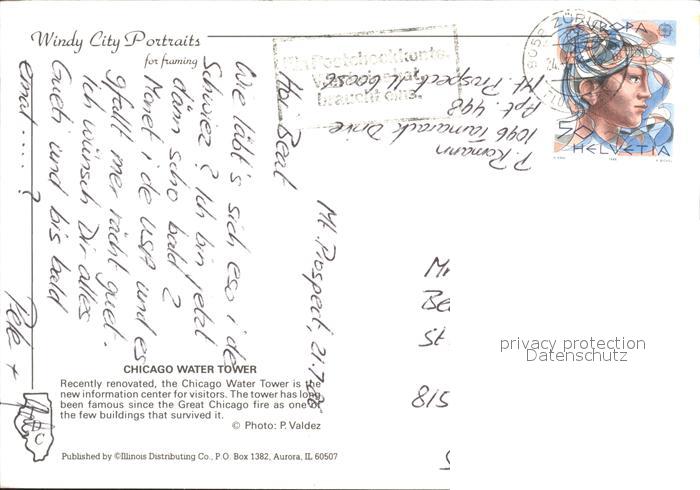 Windy City Portraits
for framing
Hoi Beat
Wie läbt's sich eso i de
Schwiez? Ich bin jetzt
dänn scho bald 2
Monet i de USA und es
gfallt mer rächt guet.
Ich wünsch Dir alles
Gueti und bis bald
emal .... ?
Pete +
Mt. Prospect, 21.7.86
P. Romann
1046 Tamarack Drive
Apt. 448
Mt. Prospect IL 60056
Ein Postcheckkonto
braucht eins.
8058 ZÜRICH
EUROPA
50
HELVETIA
Be
St
8/5
privacy protection
Datenschutz
CHICAGO WATER TOWER
Recently renovated, the Chicago Water Tower is the
new information center for visitors. The tower has long
been famous since the Great Chicago fire as one of
the few buildings that survived it.
© Photo: P. Valdez
DC
Published by ©Illinois Distributing Co., P.O. Box 1382, Aurora, IL 60507